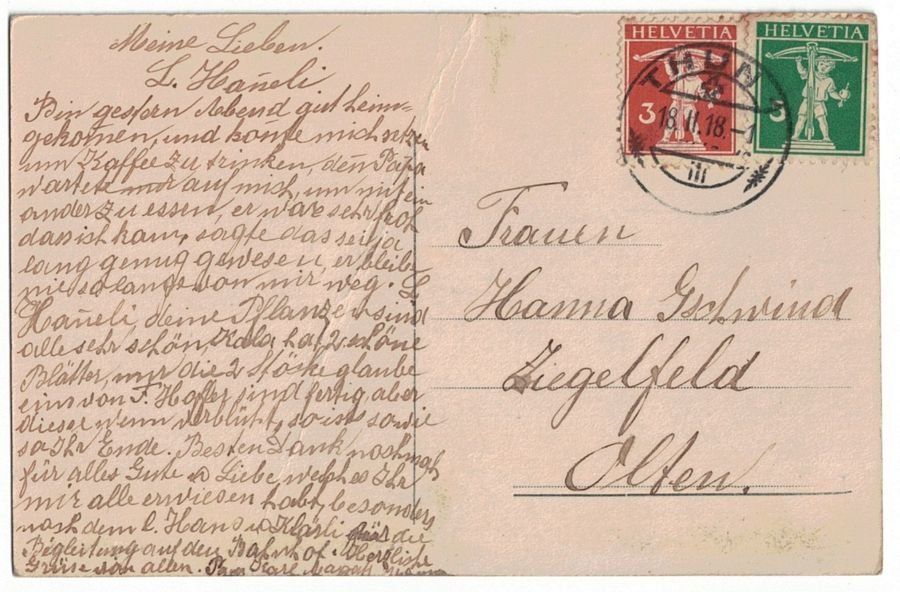 Meine Lieben.
L. Hañeli
Bin gestern Abend gut heim-
gekomen, und konte mich setzen
um Kaffee zu trinken, deñ Papa
wartete nur auf mich, um mit ein
ander zu essen, er war sehr froh
dass ich kam, sagte das sei ja
lang genug gewesen, er bleibe
nie so lange von mir weg. L.
Hañeli, deine Pflanzen sind
alle sehr schön, Kala hat 2 schöne
Blätter, nur die 2 Stöcke glaube
eins von F. Hofer sind fertig, aber
dieser wenn verblüht, so ist sowie
so Ihr Ende. Besten Dank nochmah
für alles Gute u Liebe, welches Ihr
mir alle erwiesen habt, besonders
noch dem l. Hans u Klärli für die
Begleitung auf den Bahnhof. Herzliche
Grüse von allen.
HELVETIA
3
HELVETIA
3
THUN
18.II.18.-1
III
Frauen
Hanna Gschwind
Ziegelfeld
Olten.